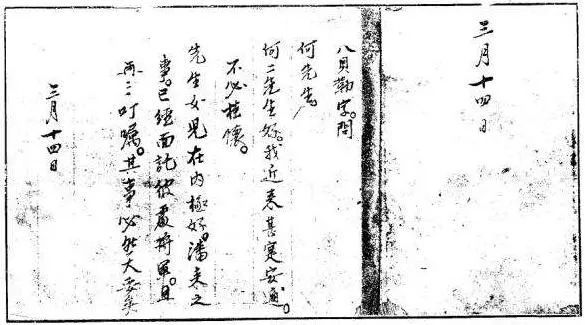 三月十四日
八貝勒字。問
何先生。
何二先生好。我近来甚寔安。
不必掛懷。
先生女兒在内極好。潘来之
事。已經面託彼處將軍。且
再三叮囑。其事必然大妥矣
三月十四日